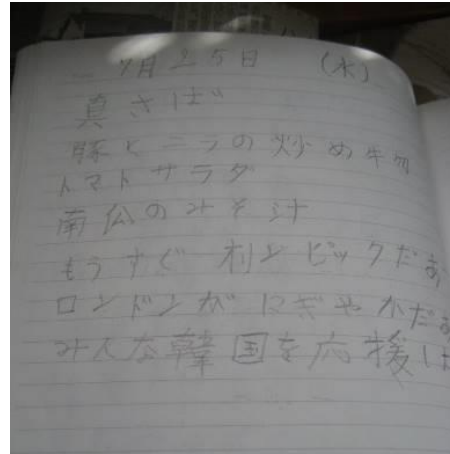 7月25日 (水)
真さば
豚とニラの炒め物
トマトサラダ
南瓜のみそ汁
もうすぐオリンピックだな
ロンドンがにぎやかだな
みんな韓国を応援し